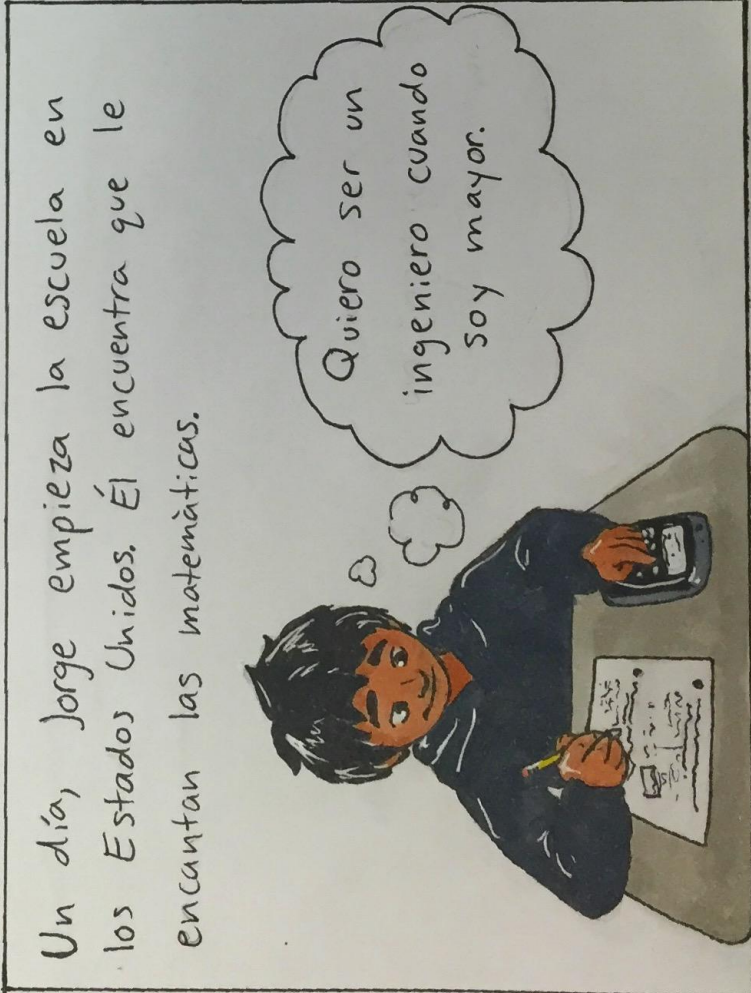 Un día, Jorge empieza la escuela en
los Estados Unidos. Él encuentra que le
encantan las matemàticas.
Quiero ser un
ingeniero cuando
soy mayor.